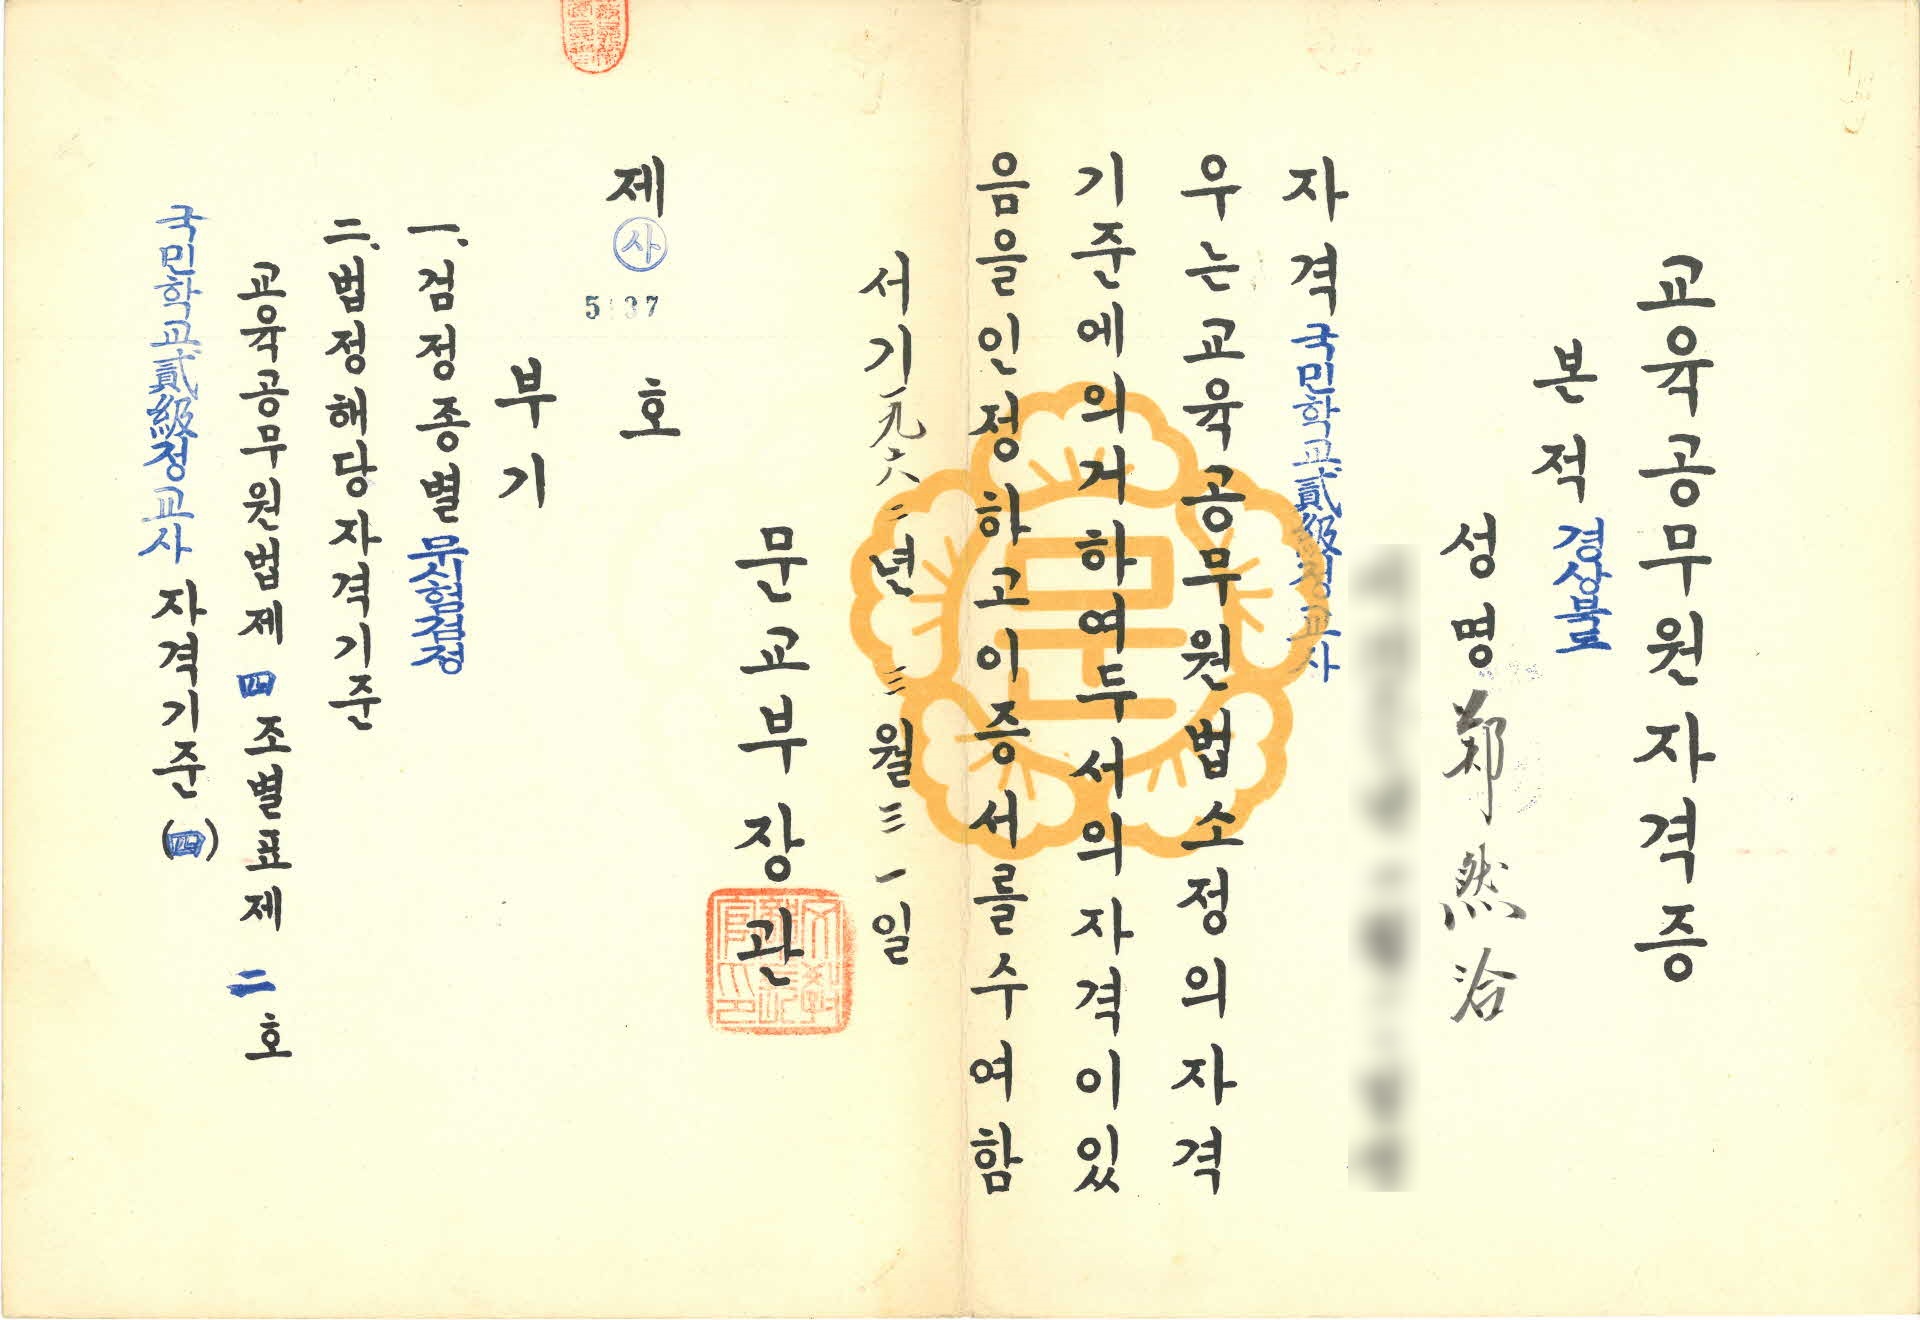 교육공무원자격증
본적 경상북도
성명 鄭然洽
자격 국민학교貳級정교사
우는교육공무원법소정의자격
기준에의거하여두서의자격이있
음을인정하고이증서를수여함
서기一九六二년 三월三一일
문교부장관
제㊂호
부기
一. 검정종별 무시험검정
二. 법정해당자격기준
교육공무원법제四조별표제二호
국민학교貳級정교사 자격기준(四)